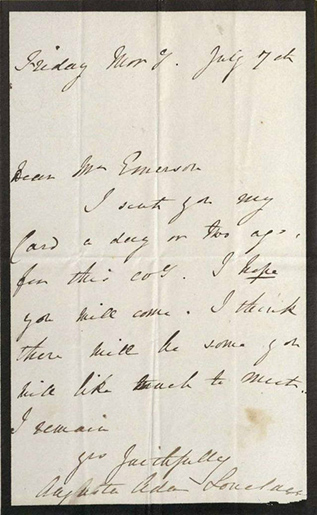 Friday Morg. July 7th
Dear Mr Emerson
I sent you my
Card a day or two ago,
for this evg. I hope
you will come. I think
there will be some you
will like much to meet.
I remain
yrs faithfully
Augusta Ada Lovelace